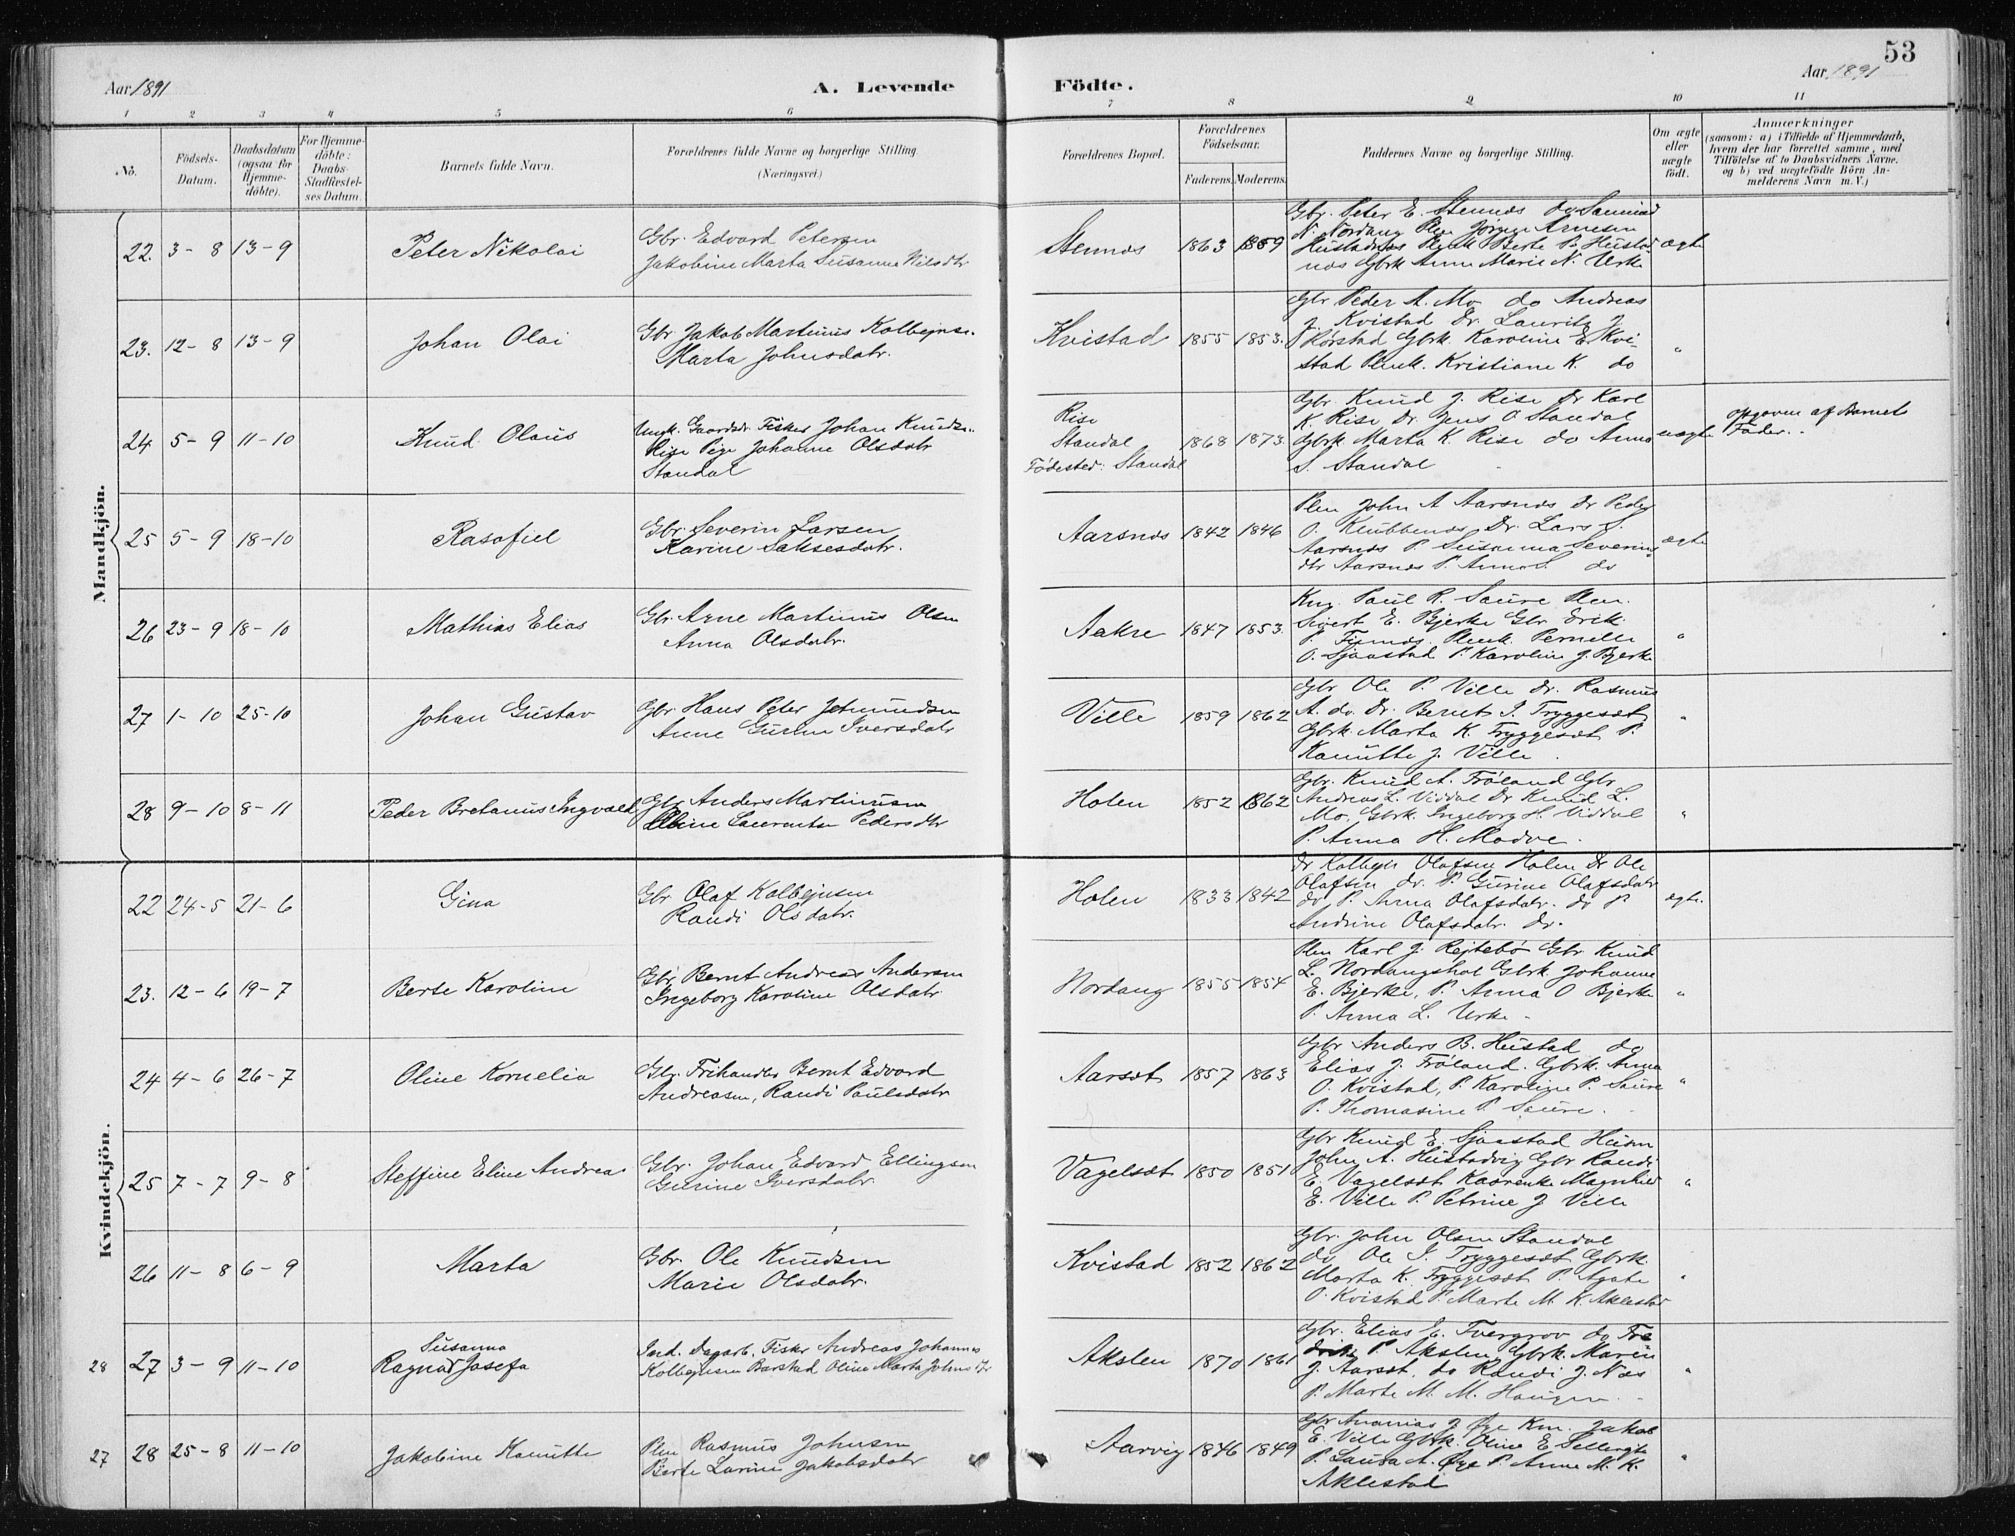 53
Aar 1891
A. Levende
Födte.
Aar 1891
1 2 3 4 5 6 7 8 9 10 11
No.
Födsels-
Datum.
Daabsdatum
(ogsaa for
Hjemme-
döbte).
For Hjemme-
döbte:
Daabs-
Stadfæstel-
ses Datum.
Barnets fulde Navn.
Forældrenes fulde Navne og borgerlige Stilling.
(Næringsvei.)
Forældrenes Bopæl.
Forældrenes
Födselsaar.
Faderens. Moderens.
Faddernes Navne og borgerlige Stilling.
Om ægte
eller
uægte
födt.
Anmærkninger
(saasom: a) i Tilfælde af Hjemmedaab,
hvem der har forrettet samme, med
Tilföielse af to Daabsvidners Navne.
og b) ved uægtefödte Börn An-
melderens Navn m. V.)
Mandkjön.
22. 3-8 13-9 Peter Nikolai
Gbr. Edvard Petersen
Jakobine Marta Susanne Nilsdtr
Stennes 1863 1859
Gbr. Peter E. Stennes do
N. Nordang Plen Jørgen Arnesen
Hustadnes Plenk Berte P. Hustad
nes Gbrk Anne Marie N. Urke
ægte
23. 12-8 13-9 Johan Olai
Gbr Jakob Martinus Kolbejnsn.
Marta Johnsdatr.
Kvistad 1855 1853.
Gbr Peder A. Mo do Andreas
J. Kvistad Dr. Laurits J
Skorstad Gbrk. Karoline E. Kvi-
stad Plenk. Kristiane K. do
"
24 5-9 11-10 Knud Olaus
Ungk. Gaardsdr. Fisker Johan Knudsn.
Rise Pige Johanne Olsdatr
Standal
Rise
Standal
Fødested: Standal
1868 1873.
Gbr. Knud J. Rise Dr Karl
K. Rise Dr. Jens O Standal
Gbrk Marta K. Rise do Anna
S. Standal
uægte
opgiven af Barnets
Fader.
25 5-9 18-10 Rasofiel
Gbr. Severin Larsen
Karine Saksesdatr.
Aarsnes 1842 1846
Plen John A Aarsnes Dr Peder
O. Knubbenes Dr. Lars S.
Aarsnes P Susanna Severins
dtr Aarsnes P. Anna S. do
ægte
26 23-9 18-10 Mathias Elias
Gbr. Arne Martinus Olsen
Anna Olsdatr.
Aakre 1847 1853.
Paul P. Saure Plen.
Sivert E. Bjerke Gbr Erik
P. Plenk. Pernelle
O. Sjaastad P. Karoline J. Bjerke
"
27 1-10 25-10 Johan Gustav
Gbr Hans Peter Jetmundsen
Anne Gurine Iversdatr
Ville 1859 1862
Gbr Ole P. Ville Dr. Rasmus
A. do. Dr. Bernt I. Tryggeset
Gbrk Marta K. Tryggeset P.
Kanutte J. Ville.
"
28 9-10 8-11 Peder Bretanus Ingvald
Gbr Anders Martinusen
Laurentse Pedersdtr
Holen 1852 1862
Gbr. Knud A. Frøland Gbr
Andreas L. Viddal Dr Knud L.
Mo. Gbrk. Ingeborg H. Viddal
P. Anna H. Madve.
"
Kvindekjön.
22 24-5 21-6 Gina
Gbr Olaf Kolbejnsen
Randi Olsdatr.
Holen 1833 1842
Dr Kolbejn Olafsen Holen Dr Ole
Olafsen do. P. Gurine Olafsdatr
do P. Anna Olafsdatr. do P
Andrine Olafsdatr. do.
ægte.
23. 12-6 19-7 Berte Karoline
Gbr Bernt Andreas Andersen
Ingeborg Karoline Olsdatr
Nordang 1855 1854
Plen Karl J. Rejtebø Gbr Knud
L. Nordangshol Gbrk. Johanne
E. Bjerke, P. Anna O Bjerke
P. Anna L. Urke.
"
24 4-6 26-7 Oline Kornelia
Gbr. Frihandler Bernt Edvard
Andreasen, Randi Paulsdatr
Aarset 1857 1863
Gbr Anders B. Hustad do
Elias J. Frøland. Gbrk. Anna
O. Kvistad, P. Karoline P. Saure
P. Thomasine P. Saure.
"
25 7-7 9-8 Steffine Eline Andrea
Gbr. Johan Edvard Ellingsen
Gurine Iversdatr.
Vagelset 1850 1851
Gbr Knud E. Sjaastad Husm
John A. Hustadvig Gbr Randi
E. Vagelset Kaarenke Magnhild
E. Ville P. Petrine J Ville
"
26 11-8 6-9 Marta
Gbr. Ole Knudsen
Marie Olsdatr.
Kvistad 1852 1862
Gbr. John Olsen Standal
do Ole I. Tryggeset Gbrk
Marta K. Tryggeset P. Agate
O. Kvistad P. Marte M. K. Aklestad
"
28 27 3-9 11-10 Susanna
Ragna Josefa
Ind. Dagarb. Fisker Andreas Johannes
Kolbejnsen Barstad Oline Marta Johnsdtr
Akslen 1870 1861
Gbr. Elias E. Tvergrov do Fre
drik P Akslen Gbrk. Maren
J. Aarset. do Randi J. Nes
P. Marte M. M. Haugen
"
27 28 25-8 11-10 Jakobine Kanutte
Plen Rasmus Johnsen
Berte Larine Jakobsdatr
Aarvig 1846 1849
Gbr Ananias J. Øye Km. Jakob
E. Ville Gbrk. Oline E.
P. Laura A. Øye P. Anne M. K.
Aklestad
"